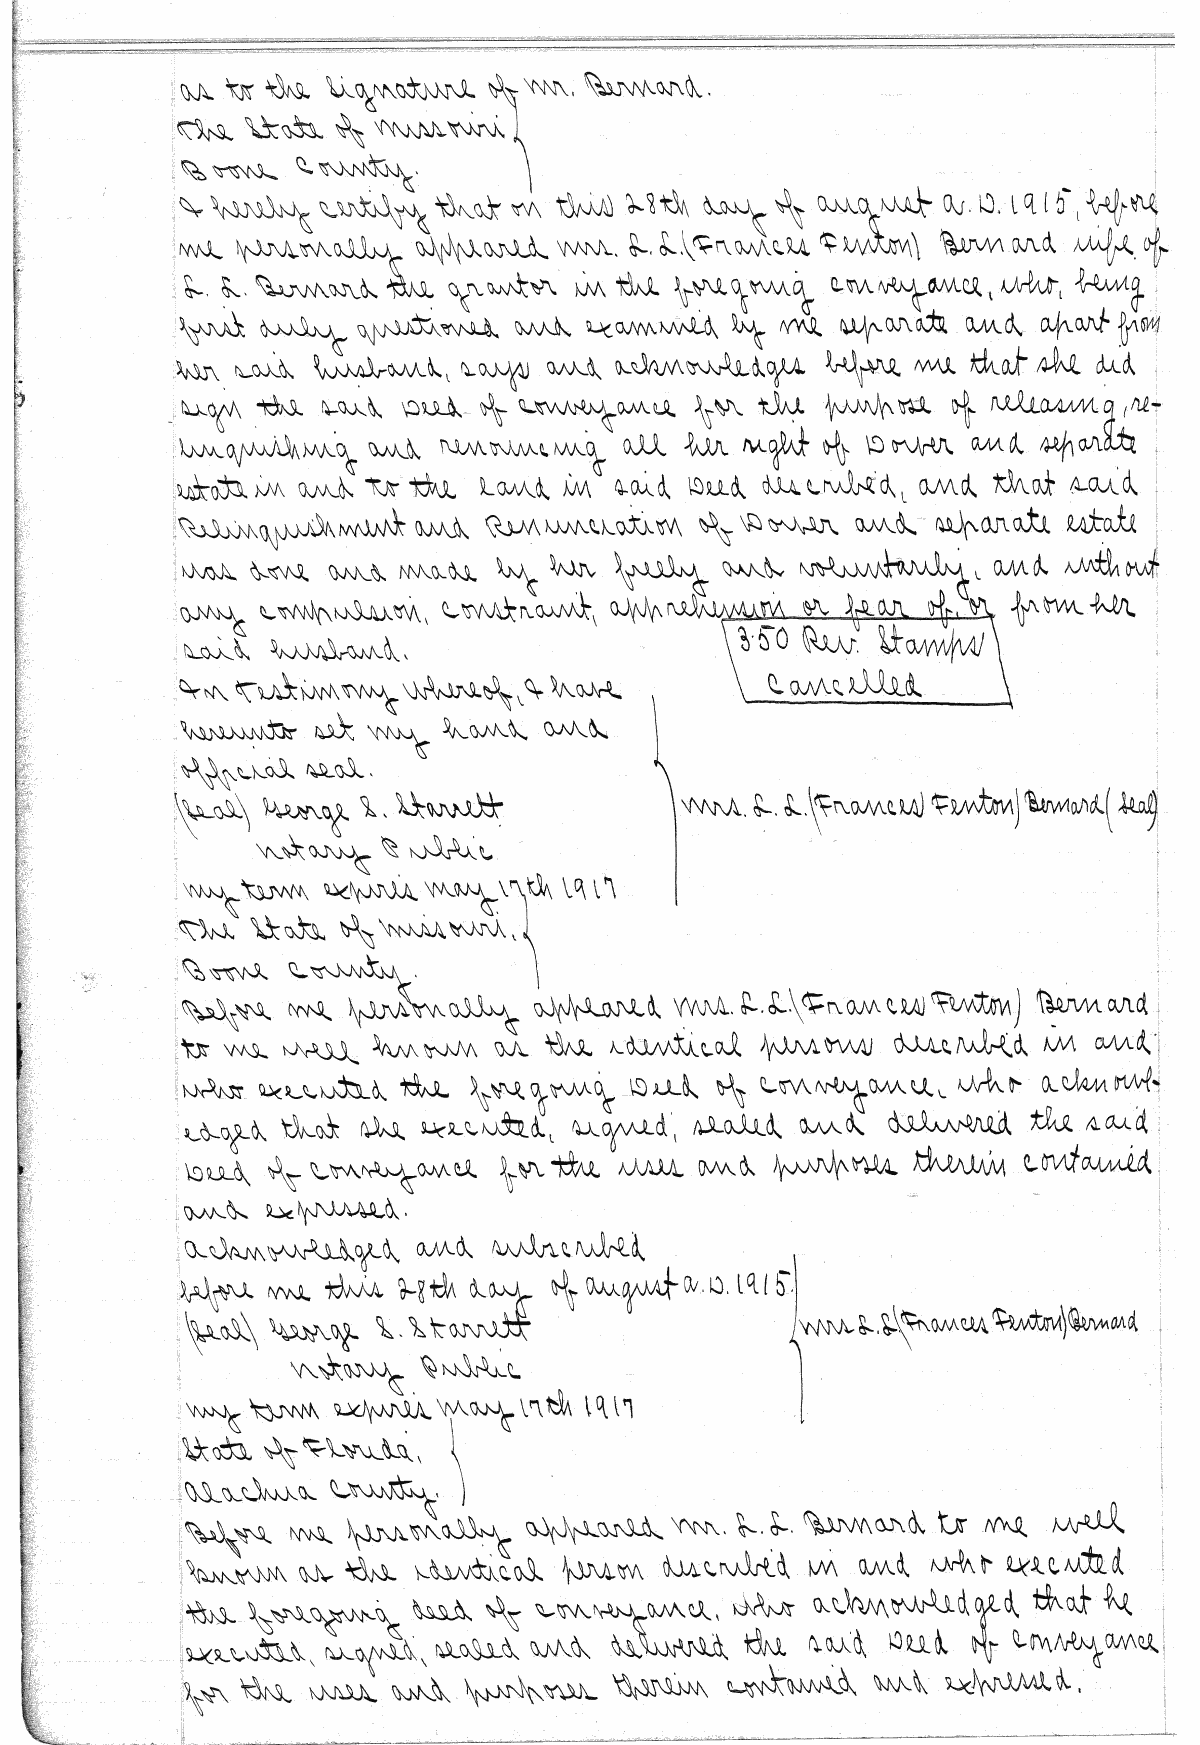 as to the Signature of Mr. Bernard.
The State of Missouri
Boone County.
I hereby certify that on this 28th day of August A.D. 1915, before
me personally appeared Mrs. L. L. (Frances Fenton) Bernard wife of
L. L. Bernard the grantor in the foregoing conveyance, who, being
first duly questioned and examined by me separate and apart from
her said husband, says and acknowledges before me that she did
sign the said Deed of conveyance for the purpose of releasing, re-
linquishing and renouncing all her right of Dower and separate
estate in and to the land in said Deed described, and that said
Relinquishment and Renunciation of Dower and separate estate
was done and made by her freely and voluntarily, and without
any compulsion, constraint, apprehension or fear of, or from her
said husband.
3.50 Rev. Stamps
Cancelled
In Testimony Whereof, I have
hereunto set my hand and
official seal.
(Seal) George S. Starrett
Mrs. L. L. (Frances Fenton) Bernard (Seal)
Notary Public
My term expires May 17th 1917
The State of Missouri,
Boone County.
Before me personally appeared Mrs. L. L. (Frances Fenton) Bernard
to me well known as the identical persons described in and
who executed the foregoing Deed of conveyance, who acknowl-
edged that she executed, signed, sealed and delivered the said
Deed of conveyance for the uses and purposes therein contained
and expressed.
Acknowledged and subscribed
before me this 28th day of August A.D. 1915.
(Seal) George S. Starrett
Mrs L. L. (Frances Fenton) Bernard
Notary Public
My term expires May 17th 1917
State of Florida,
Alachua County.
Before me personally appeared Mr. L. L. Bernard to me well
known as the identical person described in and who executed
the foregoing deed of conveyance, who acknowledged that he
executed, signed, sealed and delivered the said Deed of conveyance
for the uses and purposes therein contained and expressed.